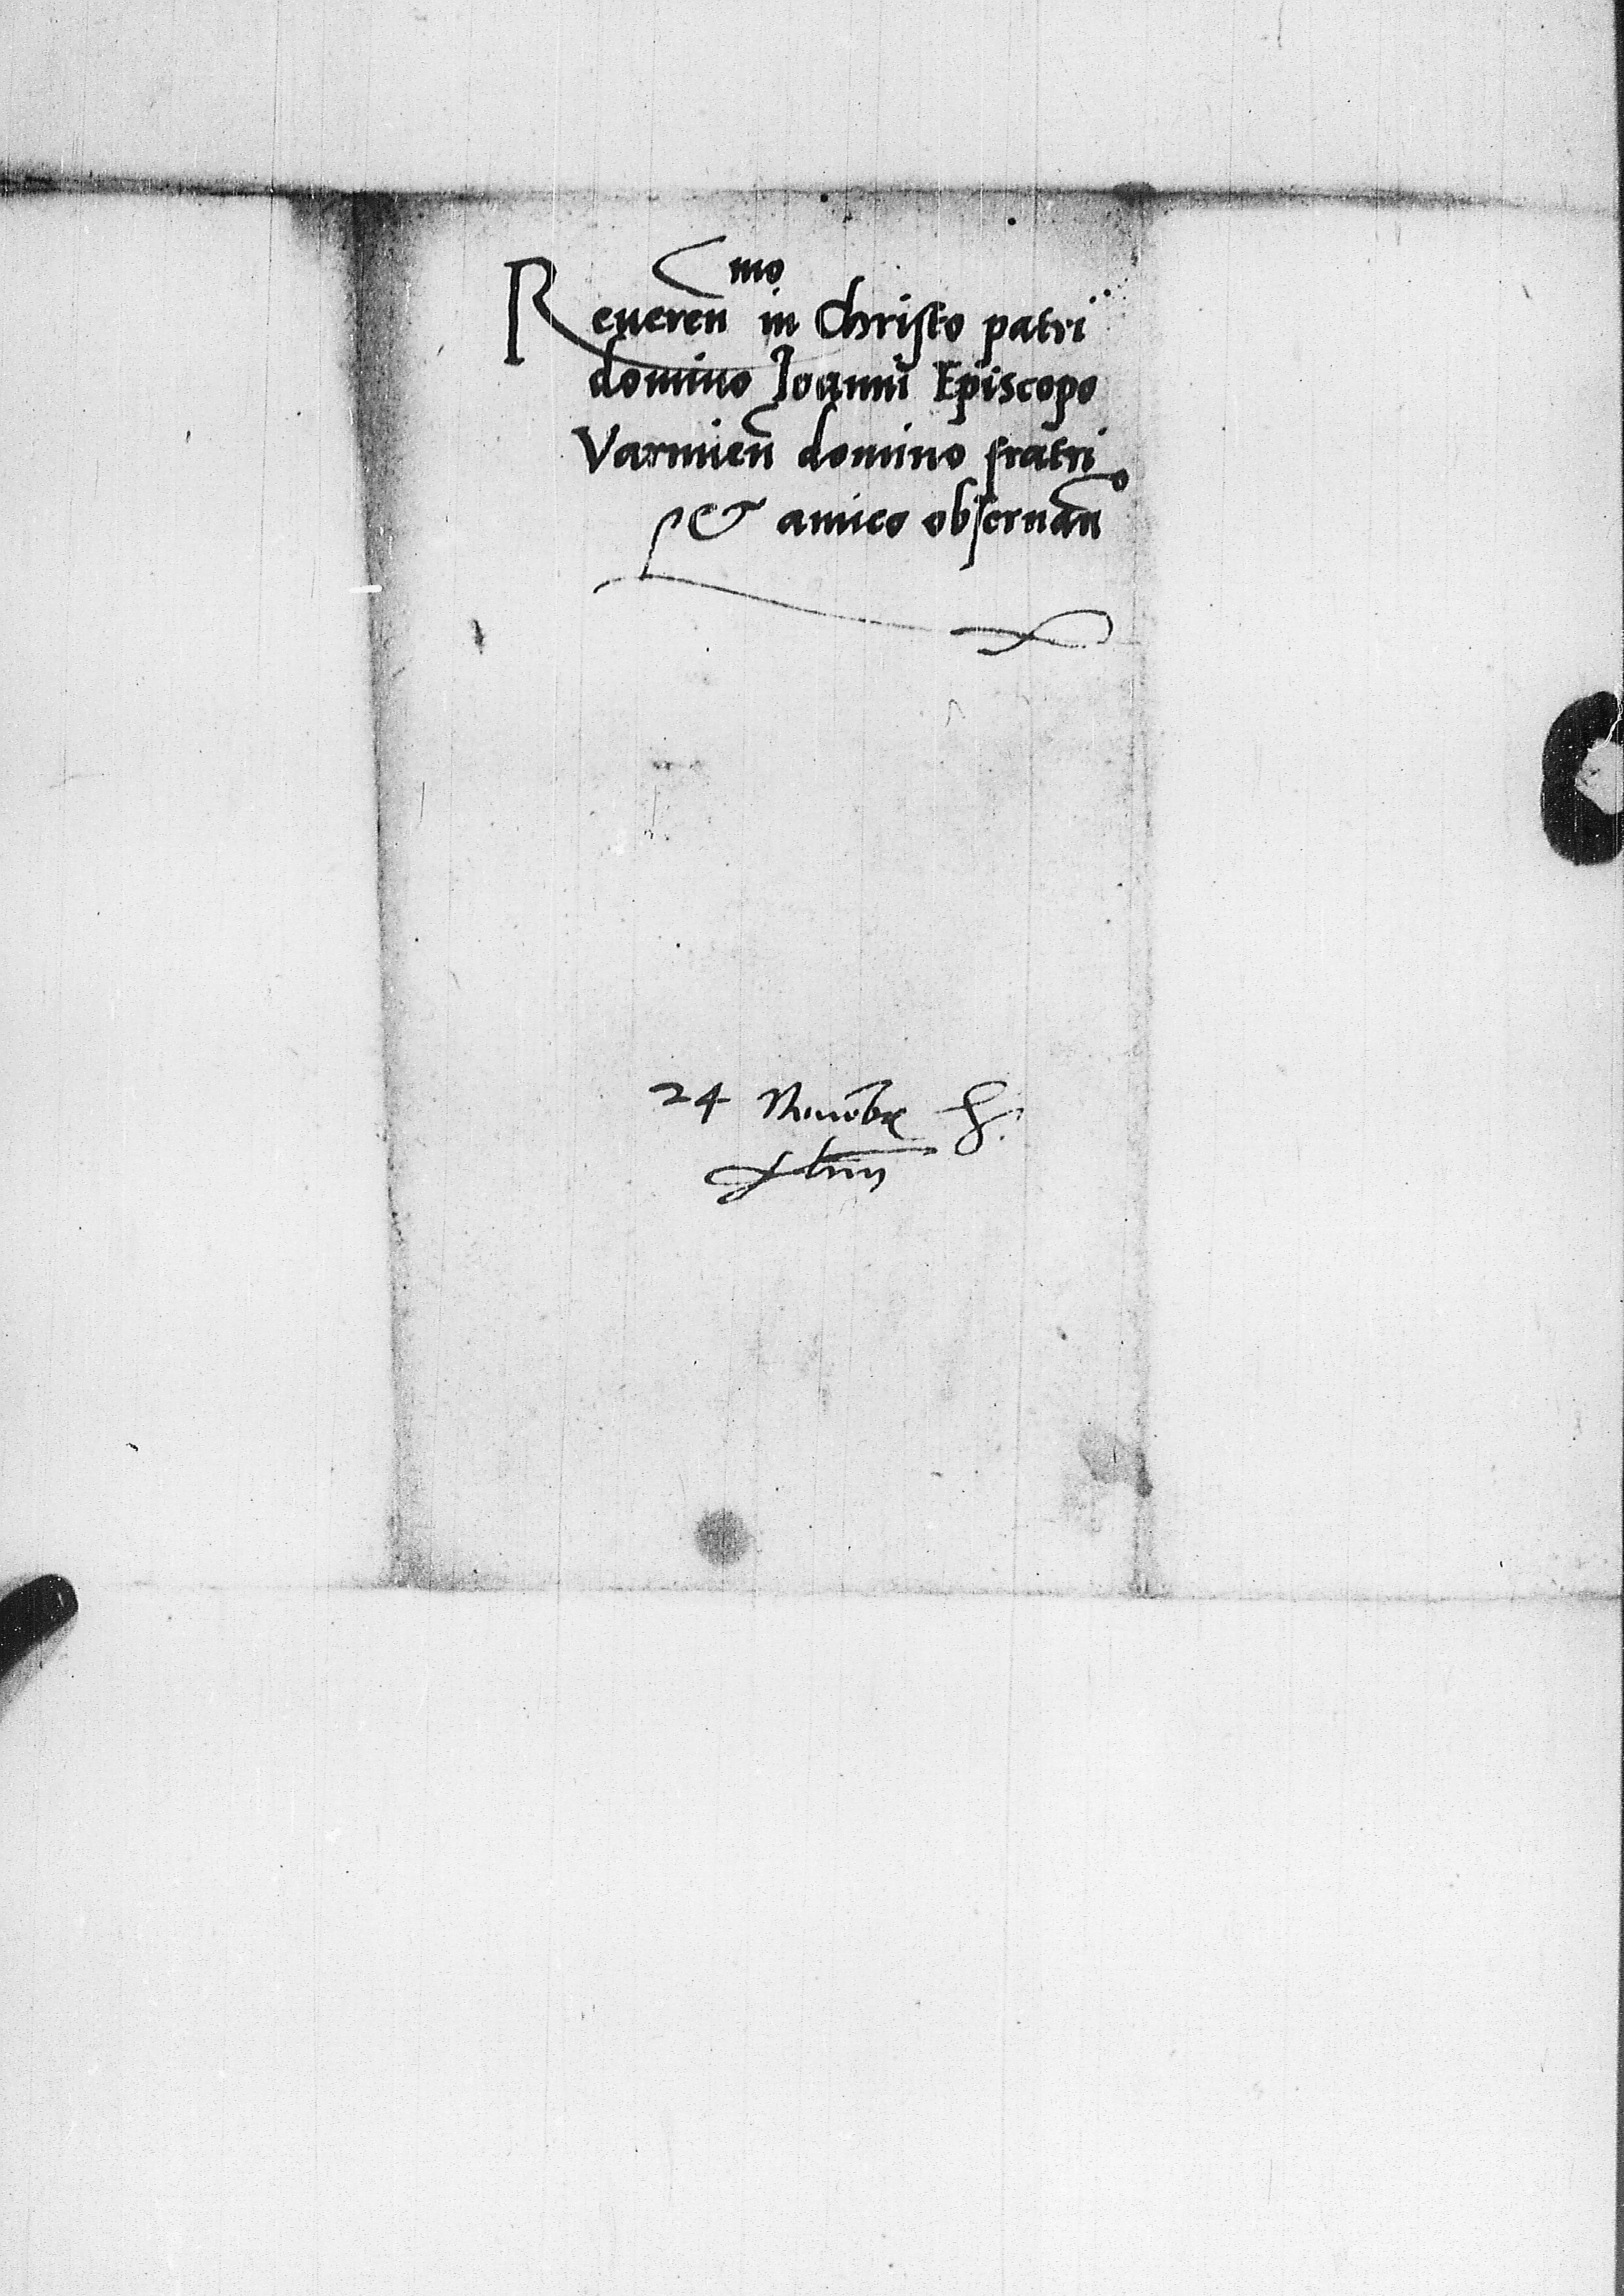 Reueren^mo in Christo patri
domino Ioanni Episcopo
Varmien̄ domino fratri
et amico obseruan̄^o
24 Nouēbr